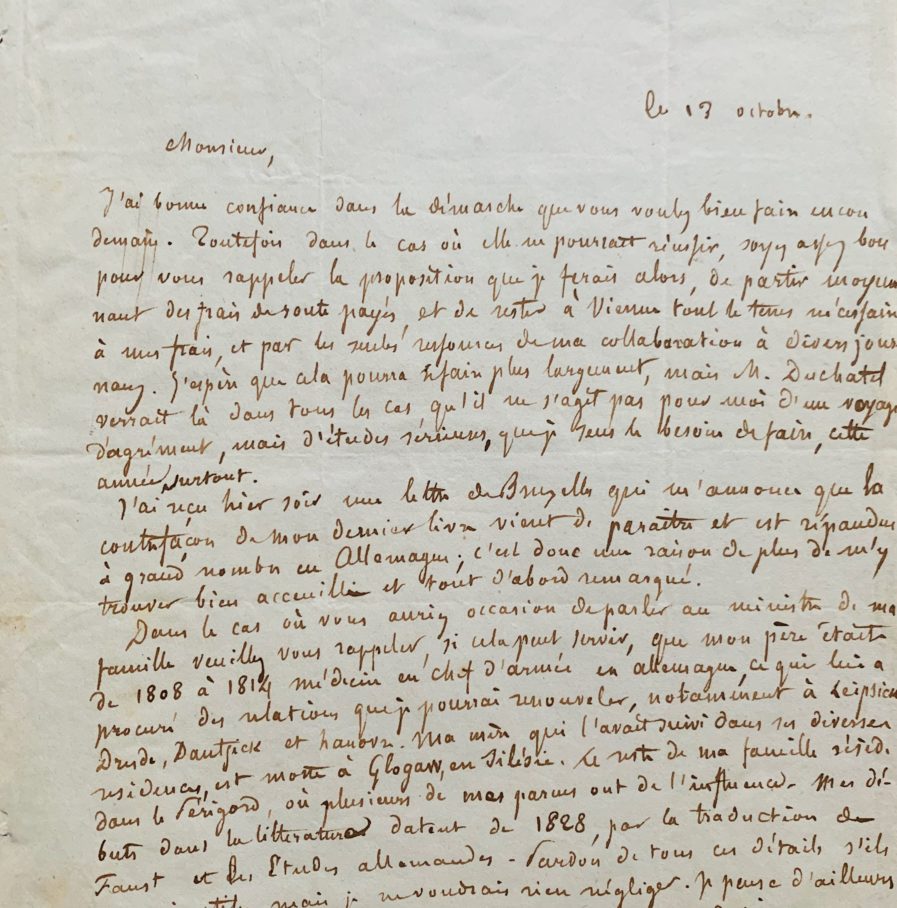 le 13 octobre.
Monsieur,
J'ai bonne confiance dans la démarche que vous voulez bien faire encore
demain. Toutefois dans le cas où elle ne pourrait réussir, soyez assez bon
pour vous rappeler la proposition que je ferais alors, de partir moyen
nant des frais de route payés, et de rester à Vienne tout le tems nécessaire
à mes frais, et par les seules ressources de ma collaboration à divers jour
naux. J'espère que cela pourra se faire plus largement, mais M. Duchatel
verrait là dans tous les cas qu'il ne s'agit pas pour moi d'un voyage
d'agrément, mais d'études sérieuses, que je sens le besoin de faire, cette
année surtout.
J'ai reçu hier soir une lettre de Bruxelles qui m'annonce que la
contrefaçon de mon dernier livre vient de paraître et est répandue
à grand nombre en Allemagne; c'est donc une raison de plus de m'y
trouver bien accueilli et tout d'abord remarqué.
Dans le cas où vous auriez occasion de parler au ministre de ma
famille veuillez vous rappeler, si cela peut servir, que mon père était
de 1808 à 1814 médecin en chef d'armée en allemagne, ce qui lui a
procuré des relations que je pourrai renouveler, notamment à Leipsick
Dresde, Dantzick et hanovre. Ma mère qui l'avait suivi dans ses diverses
residences, est morte à Glogaw, en Silésie. Le reste de ma famille réside
dans le Périgord, où plusieurs de mes parens ont de l'influence. Mes dé-
buts dans la litterature datent de 1828, par la traduction de
Faust et les Etudes allemandes - Pardon de tous ces détails s'ils
mais je ne voudrais rien négliger. Je pense d'ailleurs